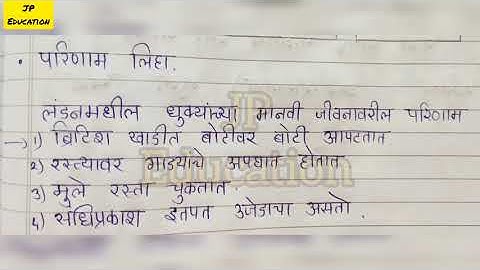 JP
EDUCATION
• परिणाम लिहा.
लंडनमधील धुक्यांच्या मानवी जीवनावरील परिणाम
→ 1) ब्रिटिश खाडीत बोटीवर बोटी आपटतात
2) रस्त्यावर गाड्याचे अपघात होतात
3) मुले रस्ता चुकतात.
4) संधिप्रकाश इतपत उजेडाचा असतो.
JP
Education